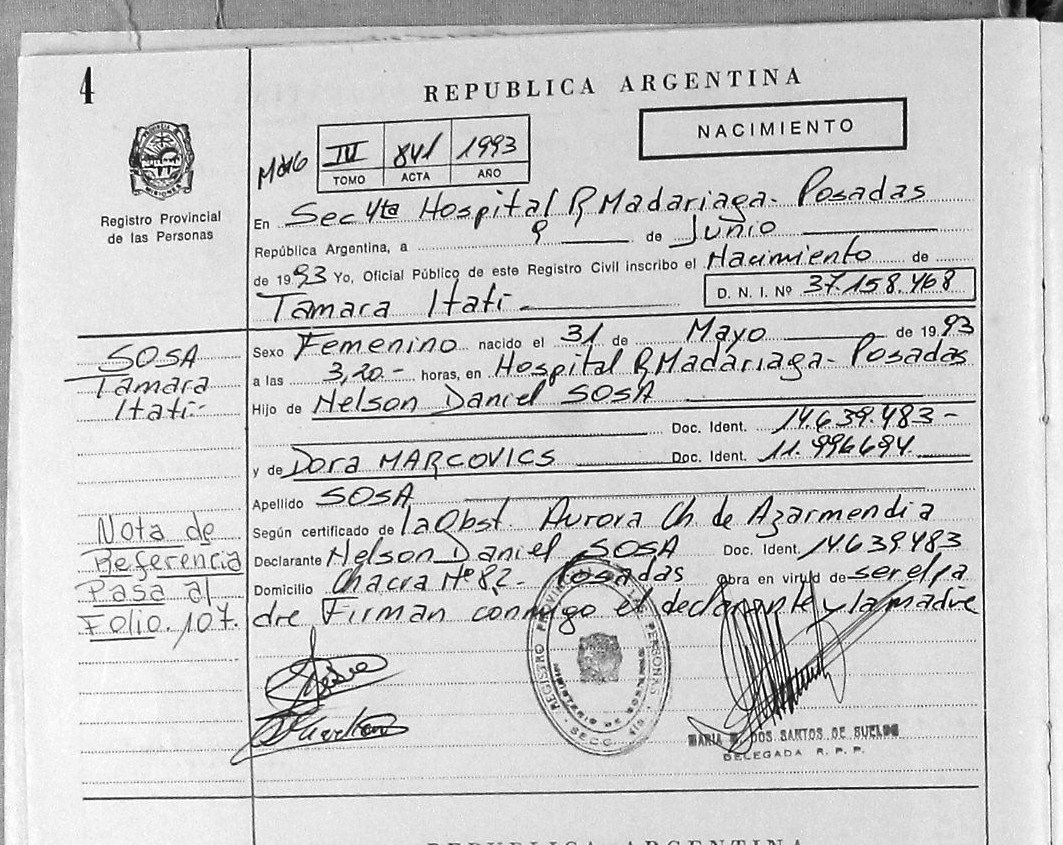 4
REPUBLICA ARGENTINA
NACIMIENTO
PROVINCIA DE MISIONES
Registro Provincial
de las Personas
IV 841 1993
TOMO ACTA AÑO
En Sec 4ta Hospital R Madariaga - Posadas
República Argentina, a 9 de Junio
de 1993 Yo, Oficial Público de este Registro Civil inscribo el Nacimiento de
Tamara Itatí - D. N. I. Nº 37.158.468
SOSA
Tamara
Itatí.-
Sexo Femenino nacido el 31 de Mayo de 1993
a las 3,20.- horas, en Hospital R Madariaga - Posadas
Hijo de Nelson Daniel SOSA
Doc. Ident. 14.639.483 -
y de Dora MARCOVICS Doc. Ident. 11.996694.
Apellido SOSA
Nota de
Referencia
Pasa al
Folio. 107.
Según certificado de la Obst. Aurora Ch de Azarmendia
Declarante Nelson Daniel SOSA Doc. Ident. 14639483
Domicilio Chacra Nº 82 - Posadas Obra en virtud de ser el pa
dre Firman conmigo el declarante y la madre
REGISTRO PROVINCIAL DE LAS PERSONAS
MINISTERIO DE GOBIERNO
SECC. 4ta
DOS SANTOS DE SUELDO
DELEGADA R. P. P.
REPUBLICA ARGENTINA